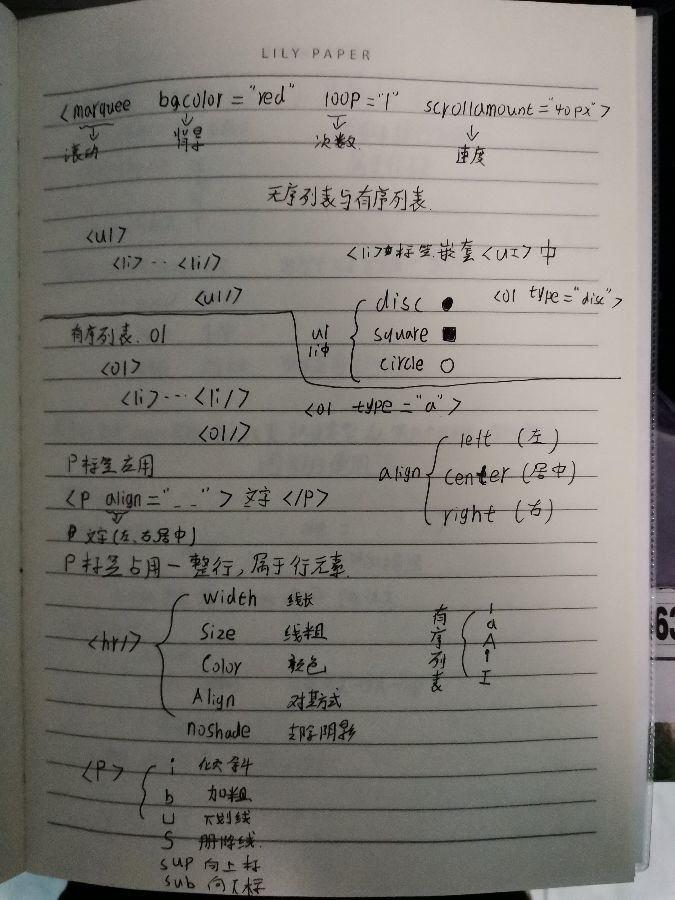 LILY PAPER
<marquee bgcolor="red" loop="1" scrollamount="40px">
滚动 背景 次数 速度
无序列表与有序列表.
<ul>
<li>...<li/> <li>标签嵌套<ul>中
<ul/>
disc ● <ol type="disc">
ul li中 square ■
circle ○
有序列表. ol
<ol>
<li>...<li/>
<ol/>
<ol type="a">
P标签应用
<P align="_ _"> 文字 </P>
文字(左、右、居中)
align left (左)
center (居中)
right (右)
P标签占用一整行,属于行元素.
<hr/> width 线长
Size 线粗
Color 颜色
Align 对其方式
noshade 去除阴影
有序列表 1 a A i I
<P> i 倾斜
b 加粗
u 下划线
S 删除线
sup 向上标
sub 向下标